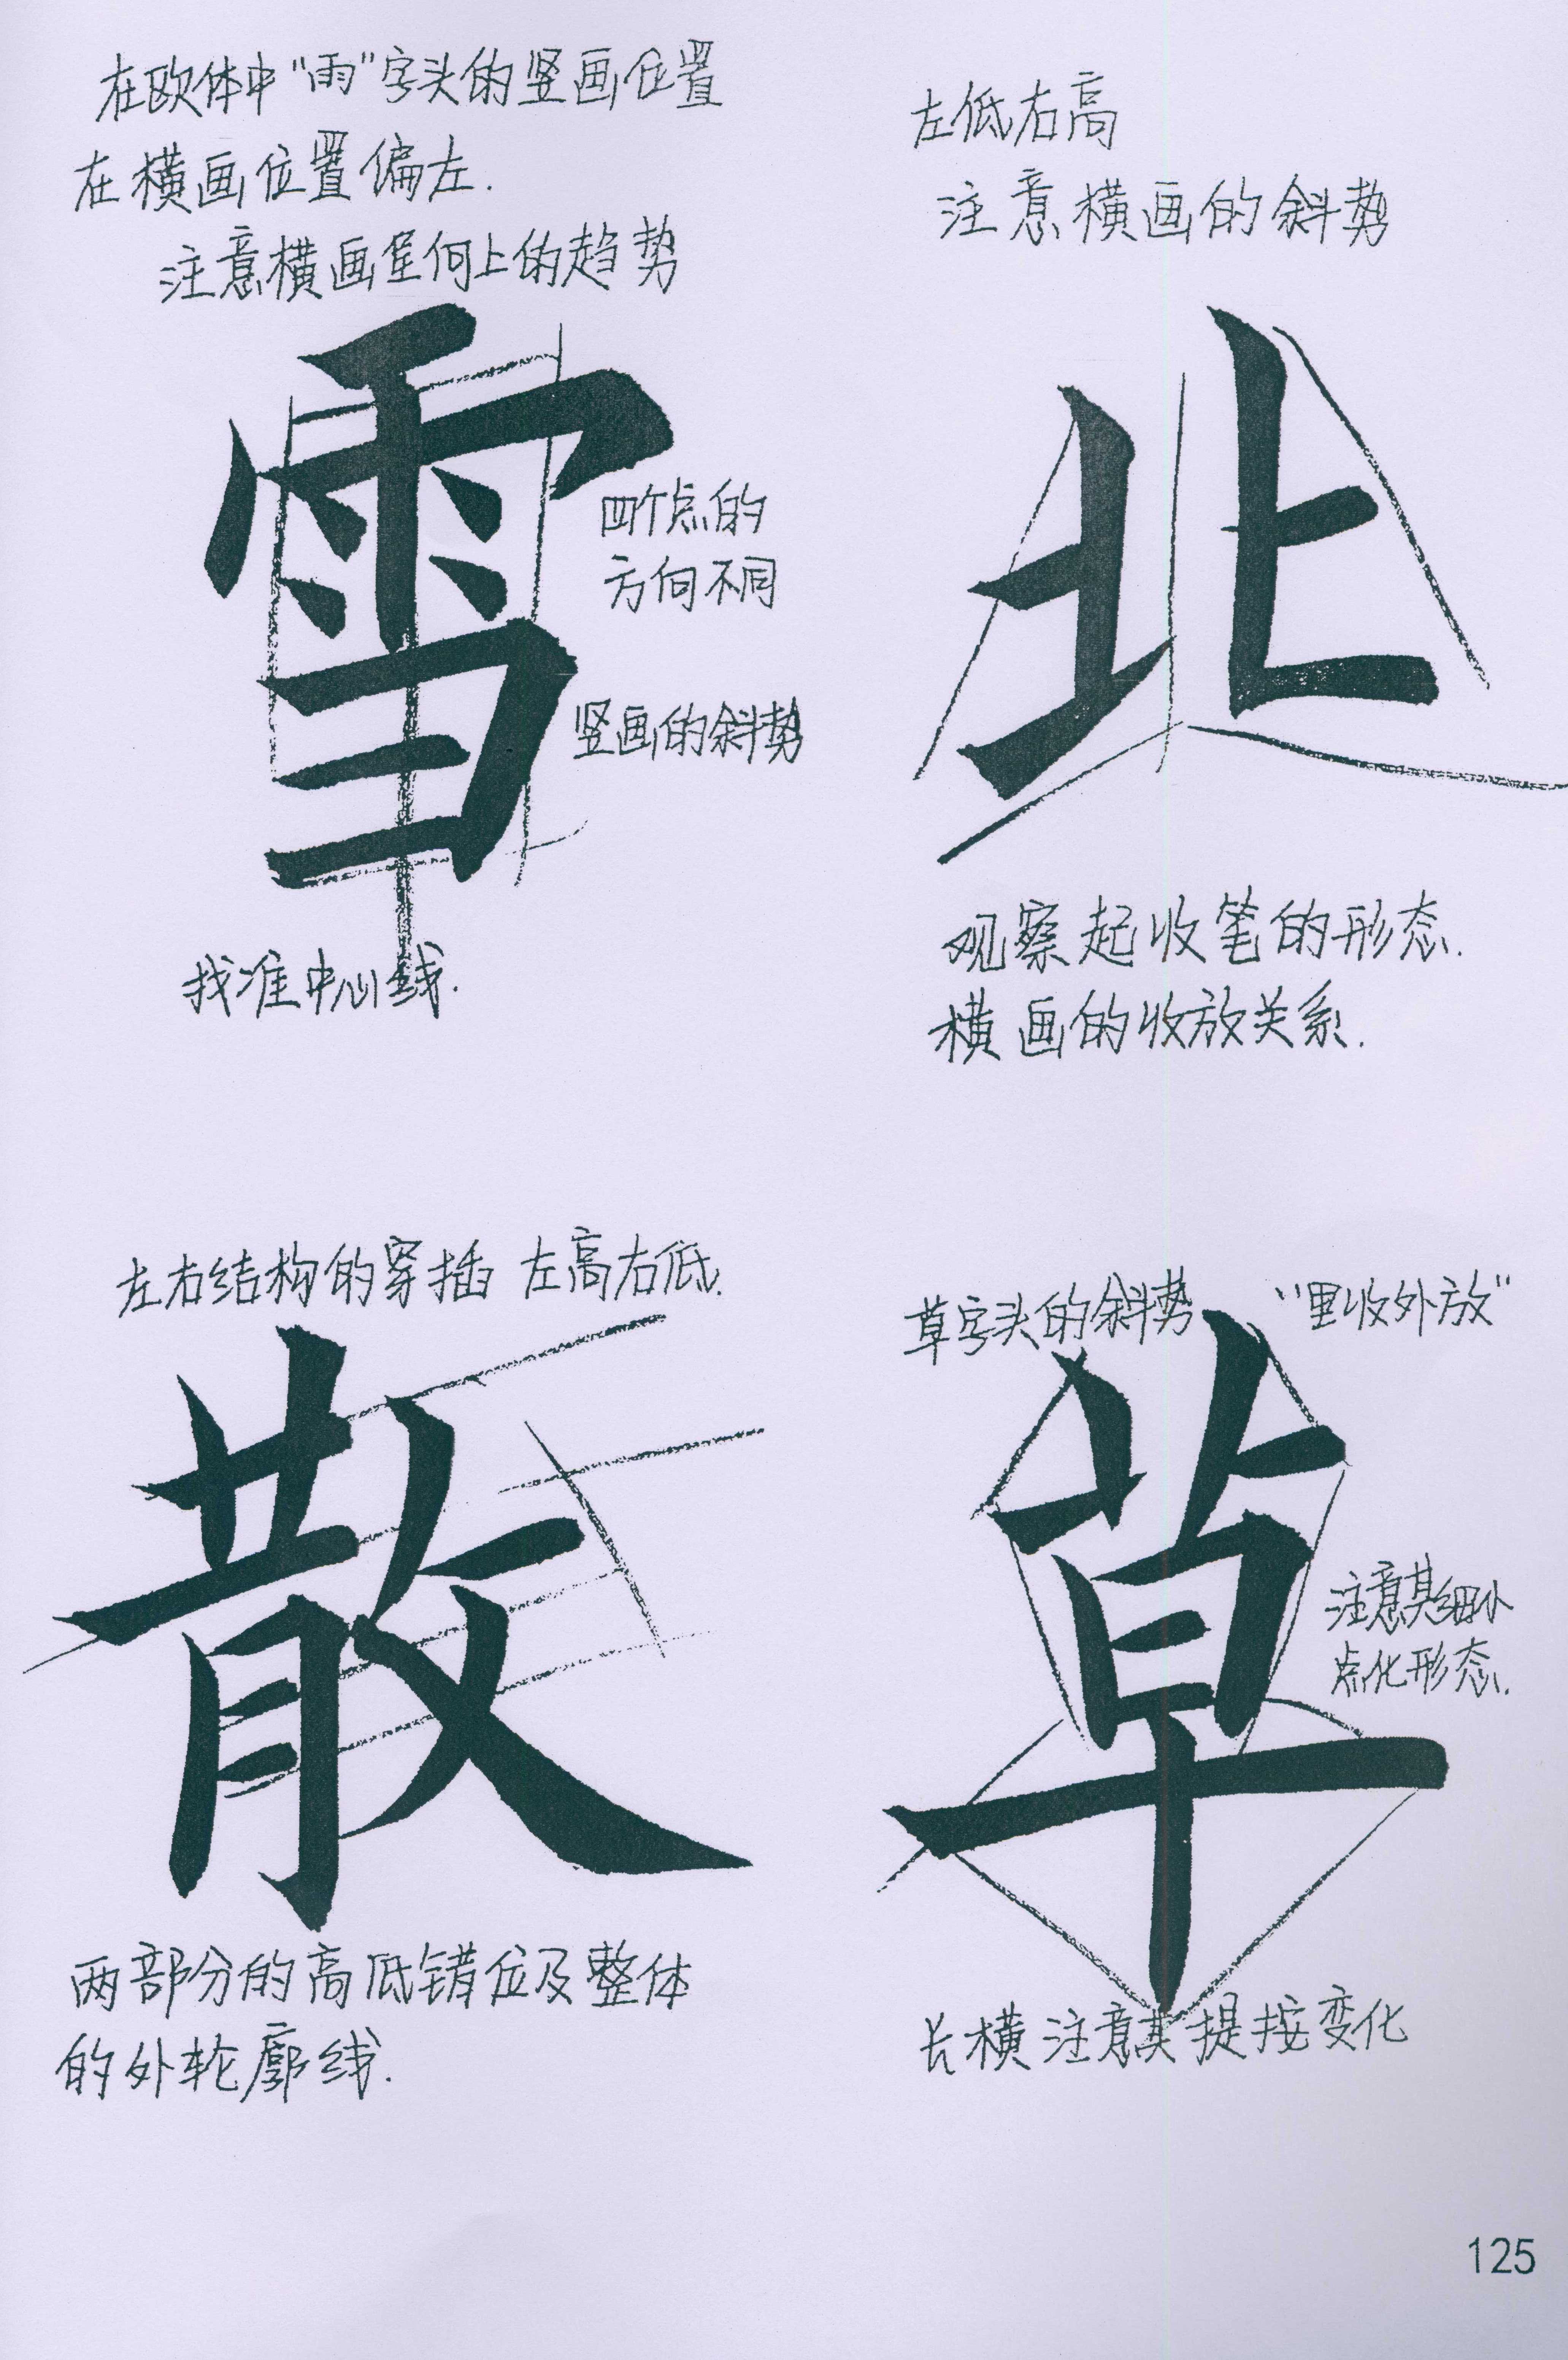 在欧体中“雨”字头的竖画位置
在横画位置偏左.
注意横画呈向上的趋势
雪
四个点的
方向不同
竖画的斜势
找准中心线.
左低右高
注意横画的斜势
北
观察起收笔的形态.
横画的收放关系.
左右结构的穿插 左高右低.
散
两部分的高低错位及整体
的外轮廓线.
草字头的斜势 “里收外放”
草
注意其细小
点化形态.
长横注意其提按变化
125